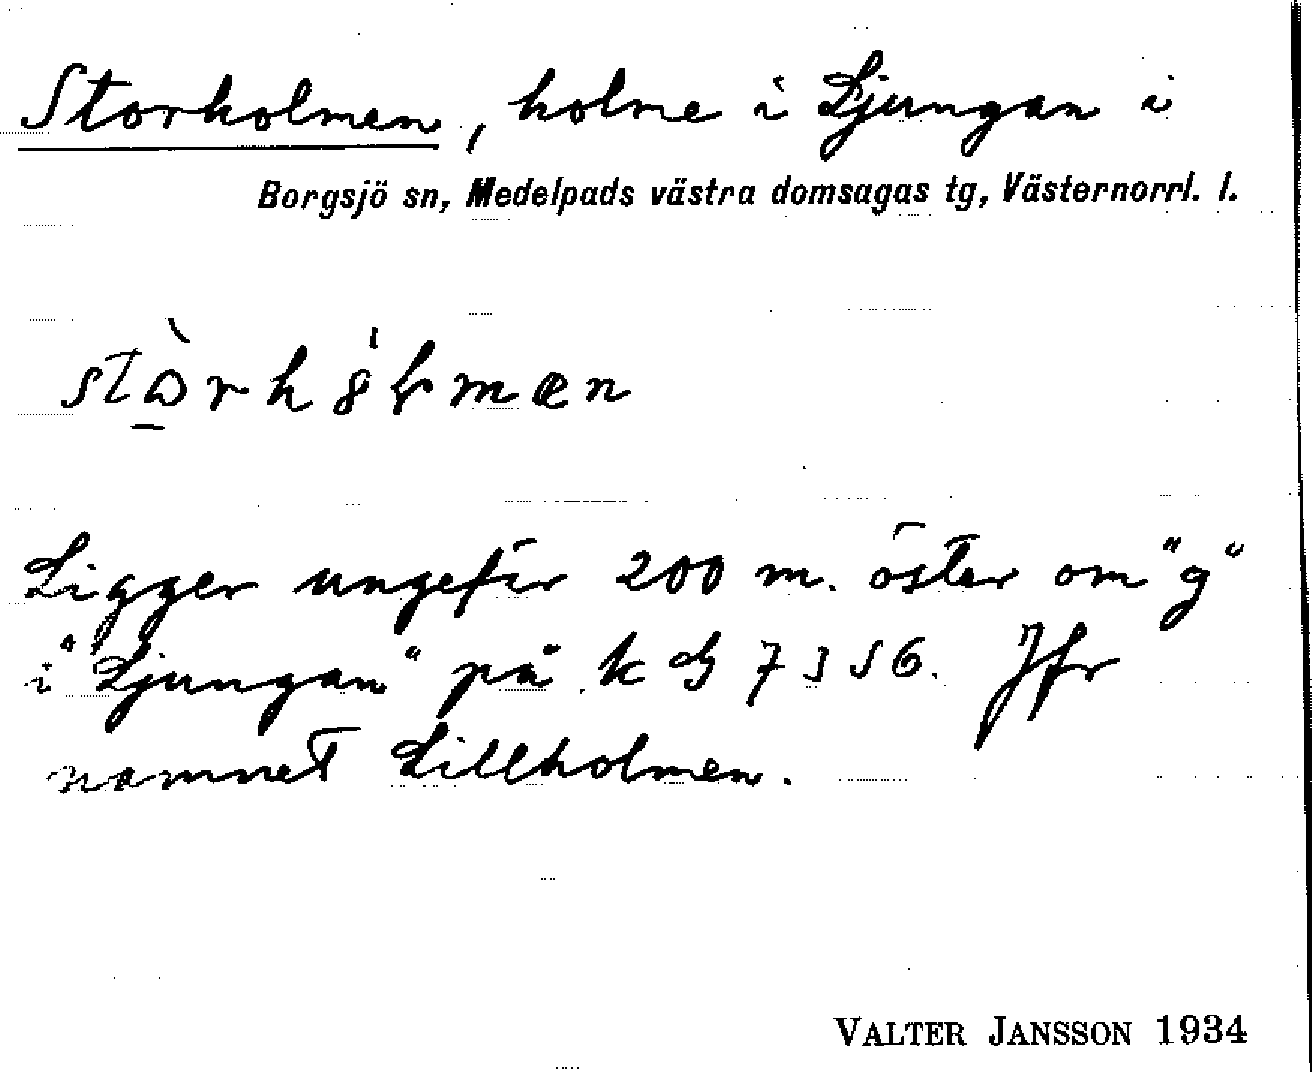 Storholmen, holme i Ljungan i
Borgsjö sn, Medelpads västra domsagas tg, Västernorrl. l.
Ligger ungefär 200 m. öster om "g"
i "Ljungan" på k G 7356. Jfr
namnet Lillholmen.
VALTER JANSSON 1934